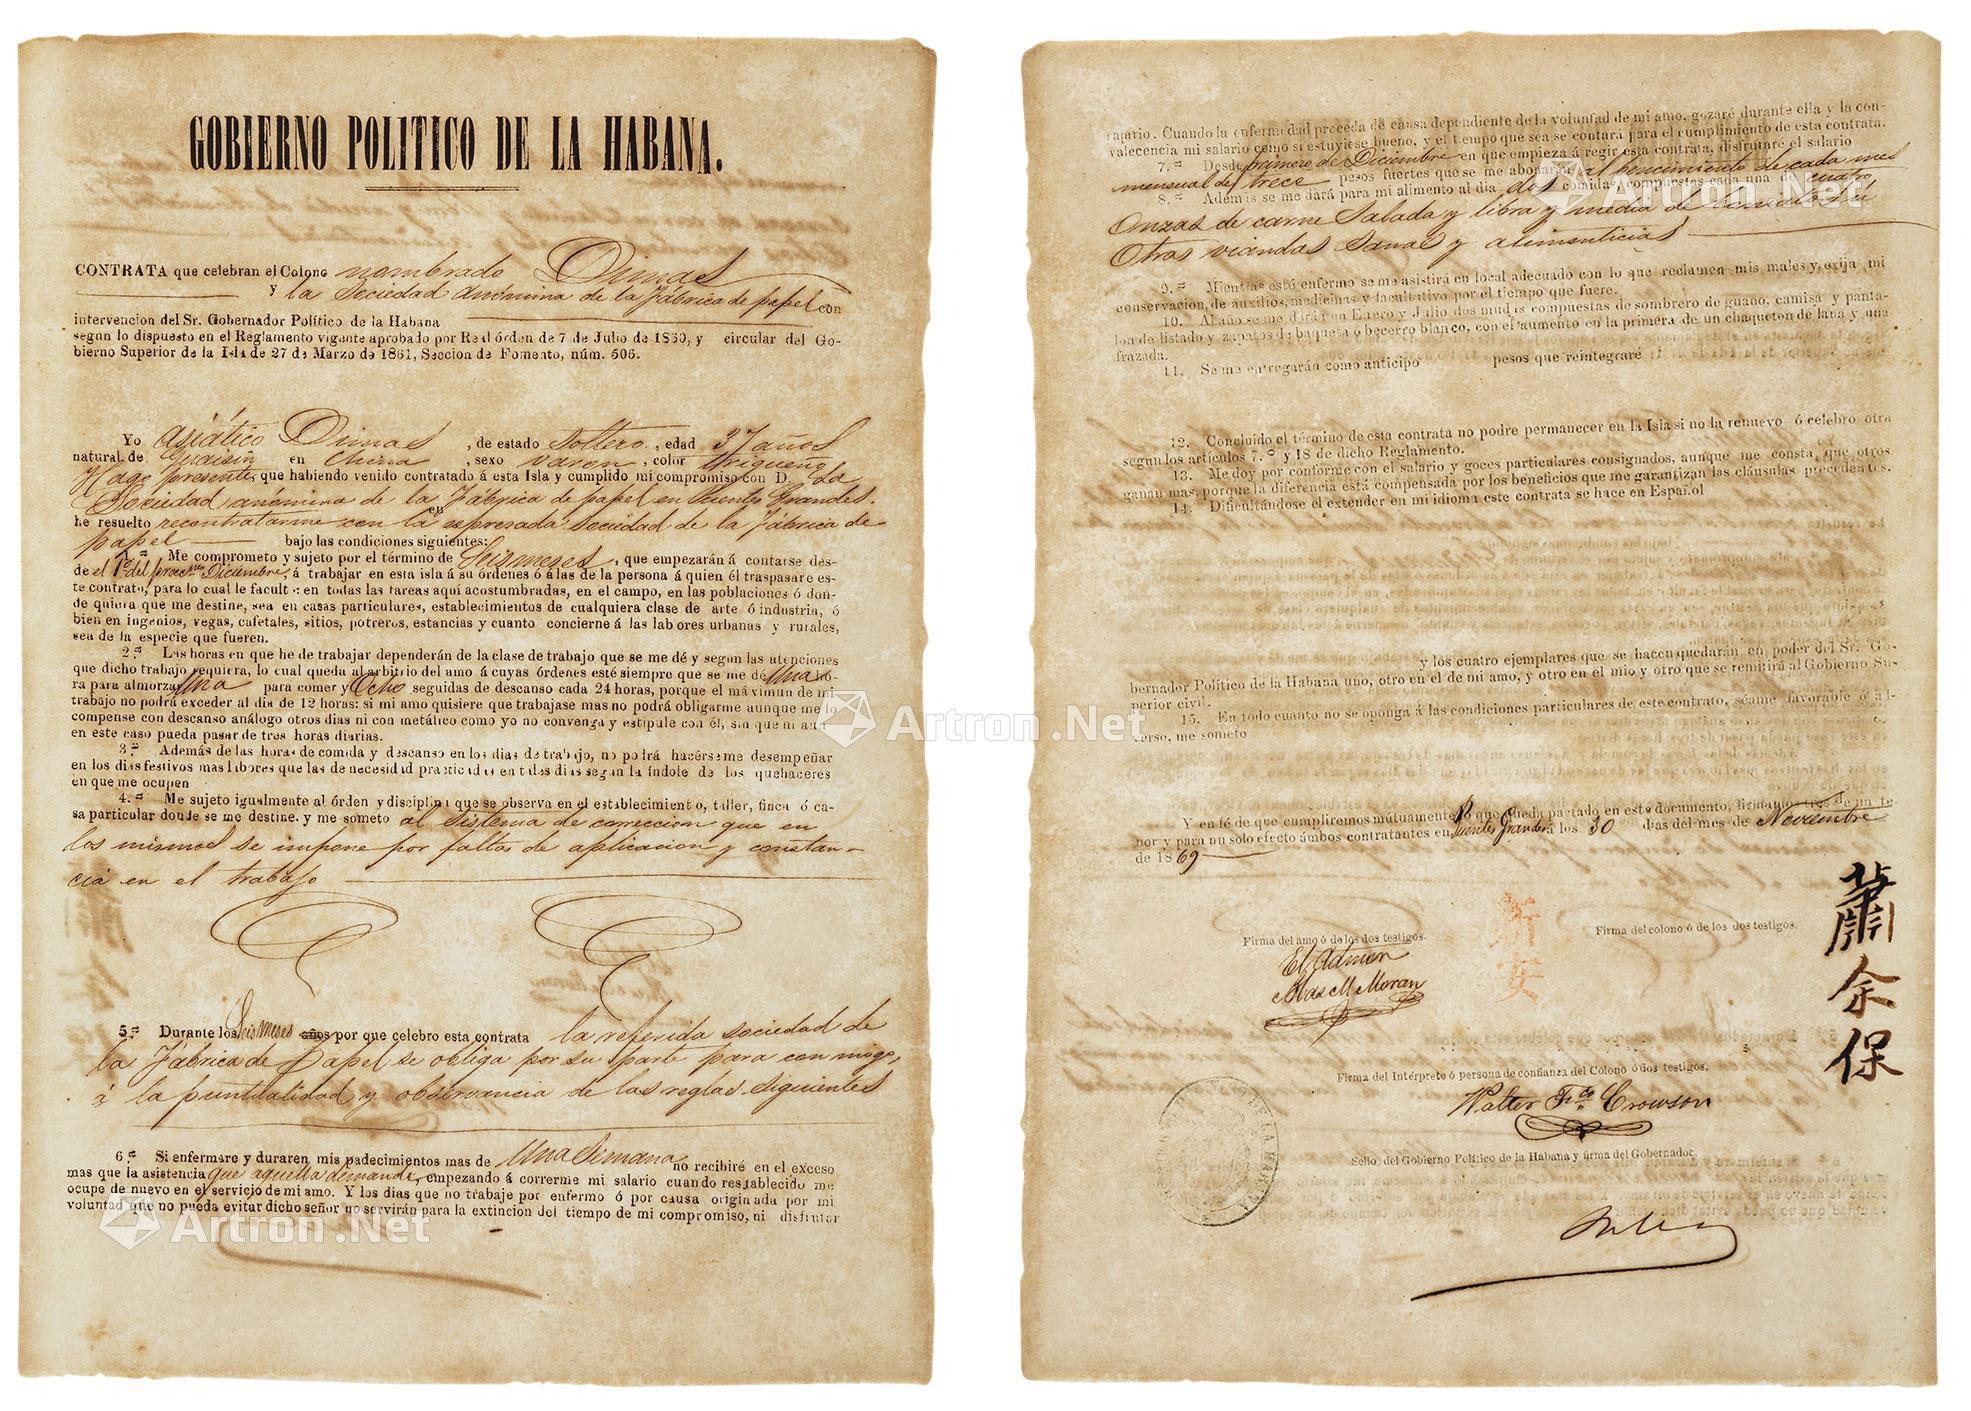 GOBIERNO POLITICO DE LA HABANA.
CONTRATA que celebran el Colono nombrado Dimas
y la Sociedad Anónima de la Fábrica de papel con
intervencion del Sr. Gobernador Político de la Habana
segun lo dispuesto en el Reglamento vigente aprobado por Real órden de 7 de Julio de 1860, y circular del Go-
bierno Superior de la Isla de 27 de Marzo de 1861, Seccion de Fomento, núm. 506.
Yo asiático Dimas, de estado Soltero, edad 37 años
natural de en China, sexo varon, color trigueño
Hago presente, que habiendo venido contratado á esta Isla y cumplido mi compromiso con D. La
Sociedad anónima de la Fábrica de papel en Puentes Grandes.
he resuelto recontratarme con la espresada Sociedad en de la Fábrica de
papel bajo las condiciones siguientes:
1.ª Me comprometo y sujeto por el término de Seis meses, que empezarán á contarse des-
de el 1º del Diciembre, á trabajar en esta isla á su órdenes ó á las de la persona á quien él traspasare es-
te contrato, para lo cual le faculto en todas las tareas aquí acostumbradas, en el campo, en las poblaciones ó don-
de quiera que me destine, sea en casas particulares, establecimientos de cualquiera clase de arte ó industria, ó
bien en ingenios, vegas, cafetales, sitios, potreros, estancias y cuanto concierne á las labores urbanas y rurales,
sea de la especie que fueren.
2.ª Las horas en que he de trabajar dependerán de la clase de trabajo que se me dé y segun las atenciones
que dicho trabajo requiera, lo cual queda al arbitrio del amo á cuyas órdenes esté siempre que se me dé Una ho-
ra para almorzar Una para comer y Ocho seguidas de descanso cada 24 horas, porque el máximun de mi
trabajo no podrá exceder al dia de 12 horas: si mi amo quisiere que trabajase mas no podrá obligarme aunque me lo
compense con descanso análogo otros dias ni con metálico como yo no convenga y estipule con él, sin que ni aun
en este caso pueda pasar de tres horas diarias.
3.ª Además de las horas de comida y descanso en los dias de trabajo, no podrá hacérseme desempeñar
en los dias festivos mas labores que las de necesidad practicadas en tales dias segun la índole de los quehaceres
en que me ocupen
4.ª Me sujeto igualmente al órden y disciplina que se observa en el establecimiento, taller, finca ó ca-
sa particular donde se me destine, y me someto al Sistema de correccion que en
los mismos se impone por faltas de aplicacion y constan-
cia en el trabajo
5.ª Durante los Seis meses años por que celebro esta contrata la referida sociedad de
la Fábrica de Papel se obliga por su parte para con migo,
á la puntualidad y observancia de las reglas siguientes
6.ª Si enfermare y duraren mis padecimientos mas de Una Semana no recibiré en el exceso
mas que la asistencia que aquella demande, empezando á correrme mi salario cuando restablecido me
ocupe de nuevo en el servicio de mi amo. Y los dias que no trabaje por enfermo ó por causa originada por mi
voluntad que no pueda evitar dicho señor no servirán para la extincion del tiempo de mi compromiso, ni disfrutar
salario. Cuando la enfermedad proceda de causa dependiente de la voluntad de mi amo, gozaré durante ella y la con-
valecencia mi salario como si estuviese bueno, y el tiempo que sea se contará para el cumplimiento de esta contrata.
7.ª Desde primero de Diciembre en que empieza á regir esta contrata, disfrutaré el salario
mensual de trece pesos fuertes que se me abonarán al vencimiento de cada mes
8.ª Además se me dará para mi alimento al dia dos comidas compuestas cada una de cuatro
onzas de carne Salada y libra y media de ú
Otras viandas sanas y alimenticias
9.ª Mientras esté enfermo se me asistirá en local adecuado con lo que reclamen mis males y exija mi
conservacion, de auxilios, medicinas y facultativo por el tiempo que fuere.
10. Al año se me darán en Enero y Julio dos mudas compuestas de sombrero de guano, camisa y panta-
lon de listado y zapatos de baqueta ó becerro blanco, con el aumento en la primera de un chaqueton de lana y una
frazada.
11. Se me entregarán como anticipo pesos que reintegraré
12. Concluido el término de esta contrata no podré permanecer en la Isla si no la renuevo ó celebro otra
segun los artículos 7.º y 18 de dicho Reglamento.
13. Me doy por conforme con el salario y goces particulares consignados, aunque me consta, que otros
ganan mas, porque la diferencia está compensada por los beneficios que me garantizan las cláusulas precedentes.
14. Dificultándose el extender en mi idioma este contrata se hace en Español
y los cuatro ejemplares que se hacen quedarán en poder del Sr. Go-
bernador Político de la Habana uno, otro en el de mi amo, y otro en el mio y otro que se remitirá al Gobierno Su-
perior civil.
15. En todo cuanto no se oponga á las condiciones particulares de este contrato, séame favorable ó al-
verso, me someto
Y en fé de que cumpliremos mútuamente lo que queda pactado en este documento, firmamos tres de un te-
nor y para un solo efecto ámbos contratantes en Puentes Grandes á los 30 dias del mes de Noviembre
de 1869
Firma del amo ó de los dos testigos.
El Admor
Blas M Moran
新安
Firma del colono ó de los dos testigos.
蕭余保
Firma del Intérprete ó persona de confianza del Colono ó dos testigos.
Walter Fco Crowson
Sello del Gobierno Político de la Habana y firma del Gobernador.
Artron.Net
Artron.Net
Artron.Net
Artron.Net